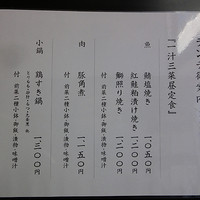 『一汁三菜昼定食』
魚
鯖塩焼き 一、〇五〇円
紅鮭粕漬け焼き 一、二〇〇円
鯛照り焼き 一、二〇〇円
付 前菜二種・小鉢・御飯・漬物・味噌汁
肉
豚角煮 一、一五〇円
付 前菜二種・小鉢・御飯・漬物・味噌汁
小鍋
鶏すき鍋 一、三〇〇円
付 前菜二種・小鉢・御飯・漬物・味噌汁